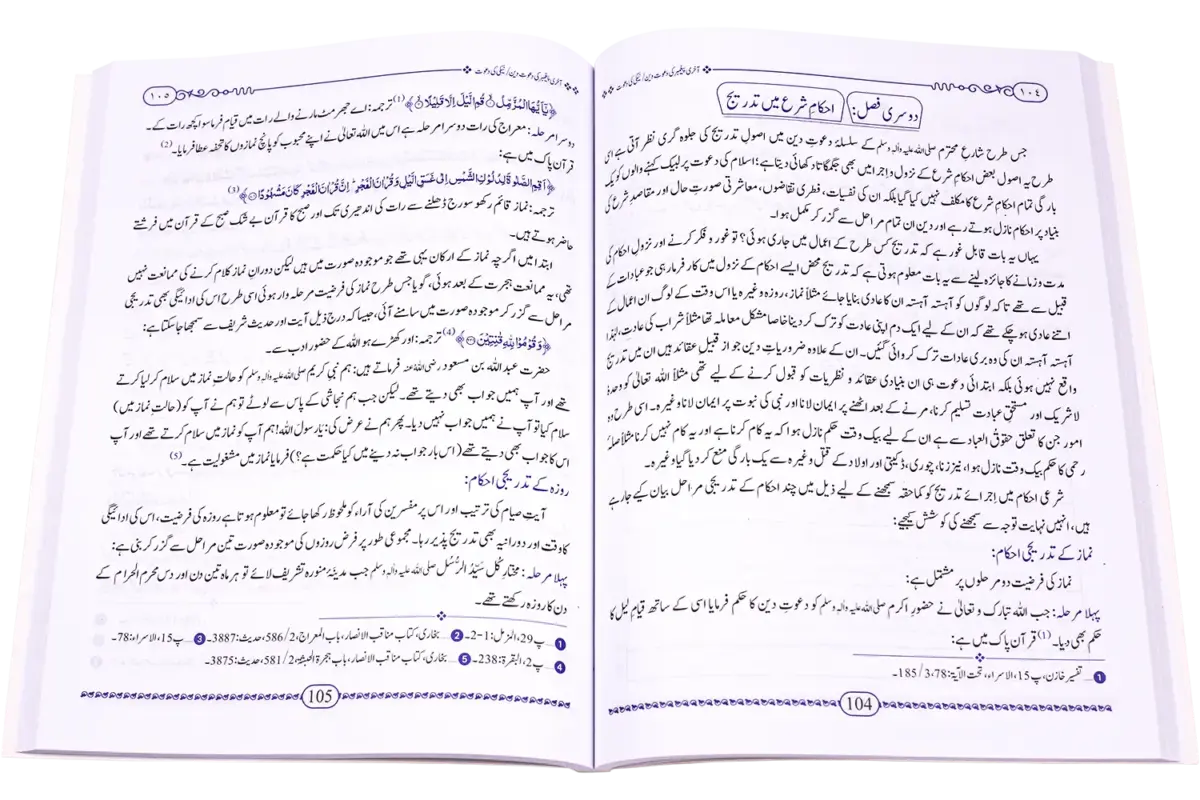 ۱۰٤
آخری پیغمبر کی دعوتِ دین / نیکی کی دعوت
دوسری فصل: احکامِ شرع میں تدریج
جس طرح شارعِ محترم صلی اللہ علیہ والہٖ وسلم کے سلسلۂ دعوتِ دین میں اصولِ تدریج کی جلوہ گری نظر آتی ہے اسی
طرح یہ اصول بعض احکامِ شرع کے نزول و اِجرا میں بھی جگمگاتا دکھائی دیتا ہے؛ اسلام کی دعوت پر لبیک کہنے والوں کو یک
بارگی تمام احکامِ شرع کا مکلف نہیں کیا گیا بلکہ ان کی نفسیات، فطری تقاضوں، معاشرتی صورتِ حال اور مقاصدِ شرع کی
بنیاد پر احکام نازل ہوتے رہے اور دین ان تمام مراحل سے گزر کر مکمل ہوا۔
یہاں یہ بات قابلِ غور ہے کہ تدریج کس طرح کے اعمال میں جاری ہوئی؟ تو غور و فکر کرنے اور نزولِ احکام کی
مدت و زمانے کا جائزہ لینے سے یہ بات معلوم ہوتی ہے کہ تدریج محض ایسے احکام کے نزول میں کار فرما رہی جو عبادات کے
قبیل سے تھے تاکہ لوگوں کو آہستہ آہستہ ان کا عادی بنایا جائے مثلاً نماز، روزہ وغیرہ یا اس وقت کے لوگ ان اعمال کے
اتنے عادی ہو چکے تھے کہ ان کے لیے ایک دم اپنی عادت کو ترک کر دینا خاصا مشکل معاملہ تھا مثلاً شراب کی عادت، لہٰذا
آہستہ آہستہ ان کی وہ بری عادات ترک کروائی گئیں۔ ان کے علاوہ ضروریاتِ دین جو از قبیلِ عقائد ہیں ان میں تدریج
واقع نہیں ہوئی بلکہ ابتدائی دعوت ہی ان بنیادی عقائد و نظریات کو قبول کرنے کے لیے تھی مثلاً اللہ تعالیٰ کو وحدہٗ
لاشریک اور مستحقِ عبادت تسلیم کرنا، مرنے کے بعد اٹھنے پر ایمان لانا اور نبی کی نبوت پر ایمان لانا وغیرہ۔ اسی طرح وہ
امور جن کا تعلق حقوق العباد سے ہے ان کے لیے بیک وقت حکم نازل ہوا کہ یہ کام کرنا ہے اور یہ کام نہیں کرنا مثلاً صلۂ
رحمی کا حکم بیک وقت نازل ہوا، نیز زنا، چوری، ڈکیتی اور اولاد کے قتل وغیرہ سے یک بارگی منع کر دیا گیا وغیرہ۔
شرعی احکام میں اِجرائے تدریج کو کماحقہ سمجھنے کے لیے ذیل میں چند احکام کے تدریجی مراحل بیان کیے جا رہے
ہیں، انہیں نہایت توجہ سے سمجھنے کی کوشش کیجیے:
نماز کے تدریجی احکام:
نماز کی فرضیت دو مرحلوں پر مشتمل ہے:
پہلا مرحلہ: جب اللہ تبارک و تعالیٰ نے حضورِ اکرم صلی اللہ علیہ والہٖ وسلم کو دعوتِ دین کا حکم فرمایا اسی کے ساتھ قیامِ لیل کا
حکم بھی دیا۔(1) قرآنِ پاک میں ہے:
1 تفسیر خازن، پ15، الاسراء، تحت الآیۃ:78، 3/185۔
104
آخری پیغمبر کی دعوتِ دین / نیکی کی دعوت
۱۰۵
﴿یٰۤاَیُّهَا الْمُزَّمِّلُۙ قُمِ الَّیْلَ اِلَّا قَلِیْلًاۙ﴾(1) ترجمہ: اے جھرمٹ مارنے والے رات میں قیام فرما سوا کچھ رات کے۔
دوسرا مرحلہ: معراج کی رات دوسرا مرحلہ ہے اس میں اللہ تعالیٰ نے اپنے محبوب کو پانچ نمازوں کا تحفہ عطا فرمایا۔(2)
قرآنِ پاک میں ہے:
﴿اَقِمِ الصَّلٰوةَ لِدُلُوْكِ الشَّمْسِ اِلٰى غَسَقِ الَّیْلِ وَ قُرْاٰنَ الْفَجْرِؕ اِنَّ قُرْاٰنَ الْفَجْرِ كَانَ مَشْهُوْدًا﴾(3)
ترجمہ: نماز قائم رکھو سورج ڈھلنے سے رات کی اندھیری تک اور صبح کا قرآن بے شک صبح کے قرآن میں فرشتے
حاضر ہوتے ہیں۔
ابتدا میں اگرچہ نماز کے ارکان یہی تھے جو موجودہ صورت میں ہیں لیکن دورانِ نماز کلام کرنے کی ممانعت نہیں
تھی، یہ ممانعت ہجرت کے بعد ہوئی، گویا جس طرح نماز کی فرضیت مرحلہ وار ہوئی اسی طرح اس کی ادائیگی بھی تدریجی
مراحل سے گزر کر موجودہ صورت میں سامنے آئی، جیسا کہ درج ذیل آیت اور حدیث شریف سے سمجھا جا سکتا ہے:
﴿وَ قُوْمُوْا لِلّٰهِ قٰنِتِیْنَ﴾(4) ترجمہ: اور کھڑے ہو اللہ کے حضور ادب سے۔
حضرت عبد اللہ بن مسعود رضی اللہ عنہ فرماتے ہیں: ہم نبیِ کریم صلی اللہ علیہ والہٖ وسلم کو حالتِ نماز میں سلام کر لیا کرتے
تھے اور آپ ہمیں جواب بھی دیتے تھے۔ لیکن جب ہم نجاشی کے پاس سے لوٹے تو ہم نے آپ کو (حالتِ نماز میں)
سلام کیا تو آپ نے ہمیں جواب نہیں دیا۔ پھر ہم نے عرض کی: یَارسولَ اللہ! ہم آپ کو نماز میں سلام کرتے تھے اور آپ
اس کا جواب بھی دیتے تھے (اس بار جواب نہ دینے میں کیا حکمت ہے؟) فرمایا نماز میں مشغولیت ہے۔(5)
روزہ کے تدریجی احکام:
آیتِ صیام کی ترتیب اور اس پر مفسرین کی آراء کو ملحوظ رکھا جائے تو معلوم ہوتا ہے روزہ کی فرضیت، اس کی ادائیگی
کا وقت اور دورانیہ بھی تدریج پذیر رہا۔ مجموعی طور پر فرض روزوں کی موجودہ صورت تین مراحل سے گزر کر بنی ہے:
پہلا مرحلہ: مختارِ کُل سَیِّدُ الرُّسُل صلی اللہ علیہ والہٖ وسلم جب مدینۂ منورہ تشریف لائے تو ہر ماہ تین دن اور دس محرم الحرام کے
دن کا روزہ رکھتے تھے۔
1 پ29، المزمل:1-2۔ 2 بخاری، کتاب مناقب الانصار، باب المعراج، 2/586، حدیث:3887۔ 3 پ15، الاسراء:78۔
4 پ2، البقرۃ:238۔ 5 بخاری، کتاب مناقب الانصار، باب ہجرۃ الحبشۃ، 2/581، حدیث:3875۔
105